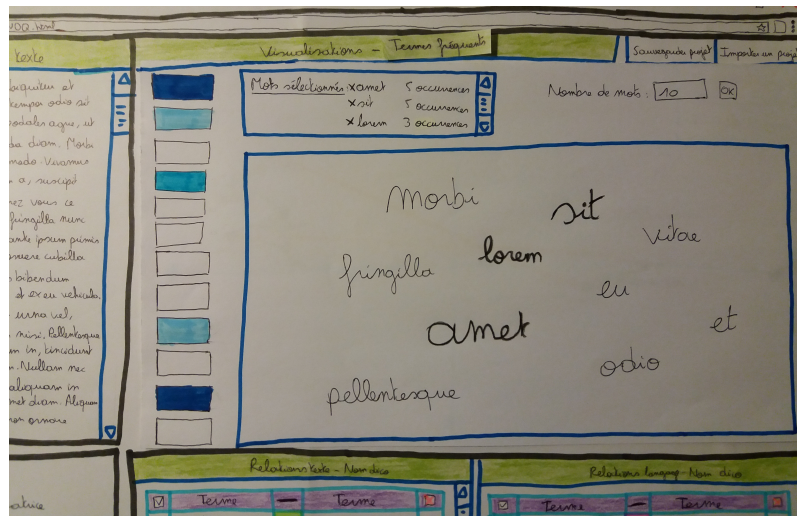 OQ.html
texte
Visualisations - Termes fréquents
Sauvegarde projet
Importer un projet
et
tempor odio sit
sodales augue, ut
diam. Morbi
Vivamus
a, suscipit
vous ce
fringilla nunc
ante ipsum primis
cubilla
bibendum
et ex eu vehicula.
urna vel,
nisi. Pellentesque
in, tincidunt
. Nullam nec
aliquam in
amet diam. Aliquam
non ornare
Mots sélectionnés: x amet 5 occurrences
x sit 5 occurrences
x lorem 3 occurrences
Nombre de mots: 10 OK
Morbi
sit
vitae
lorem
fringilla
eu
amet
et
odio
pellentesque
Relations texte - Nom dico
Relations langue - Nom dico
Terme — Terme
Terme — Terme
atrice